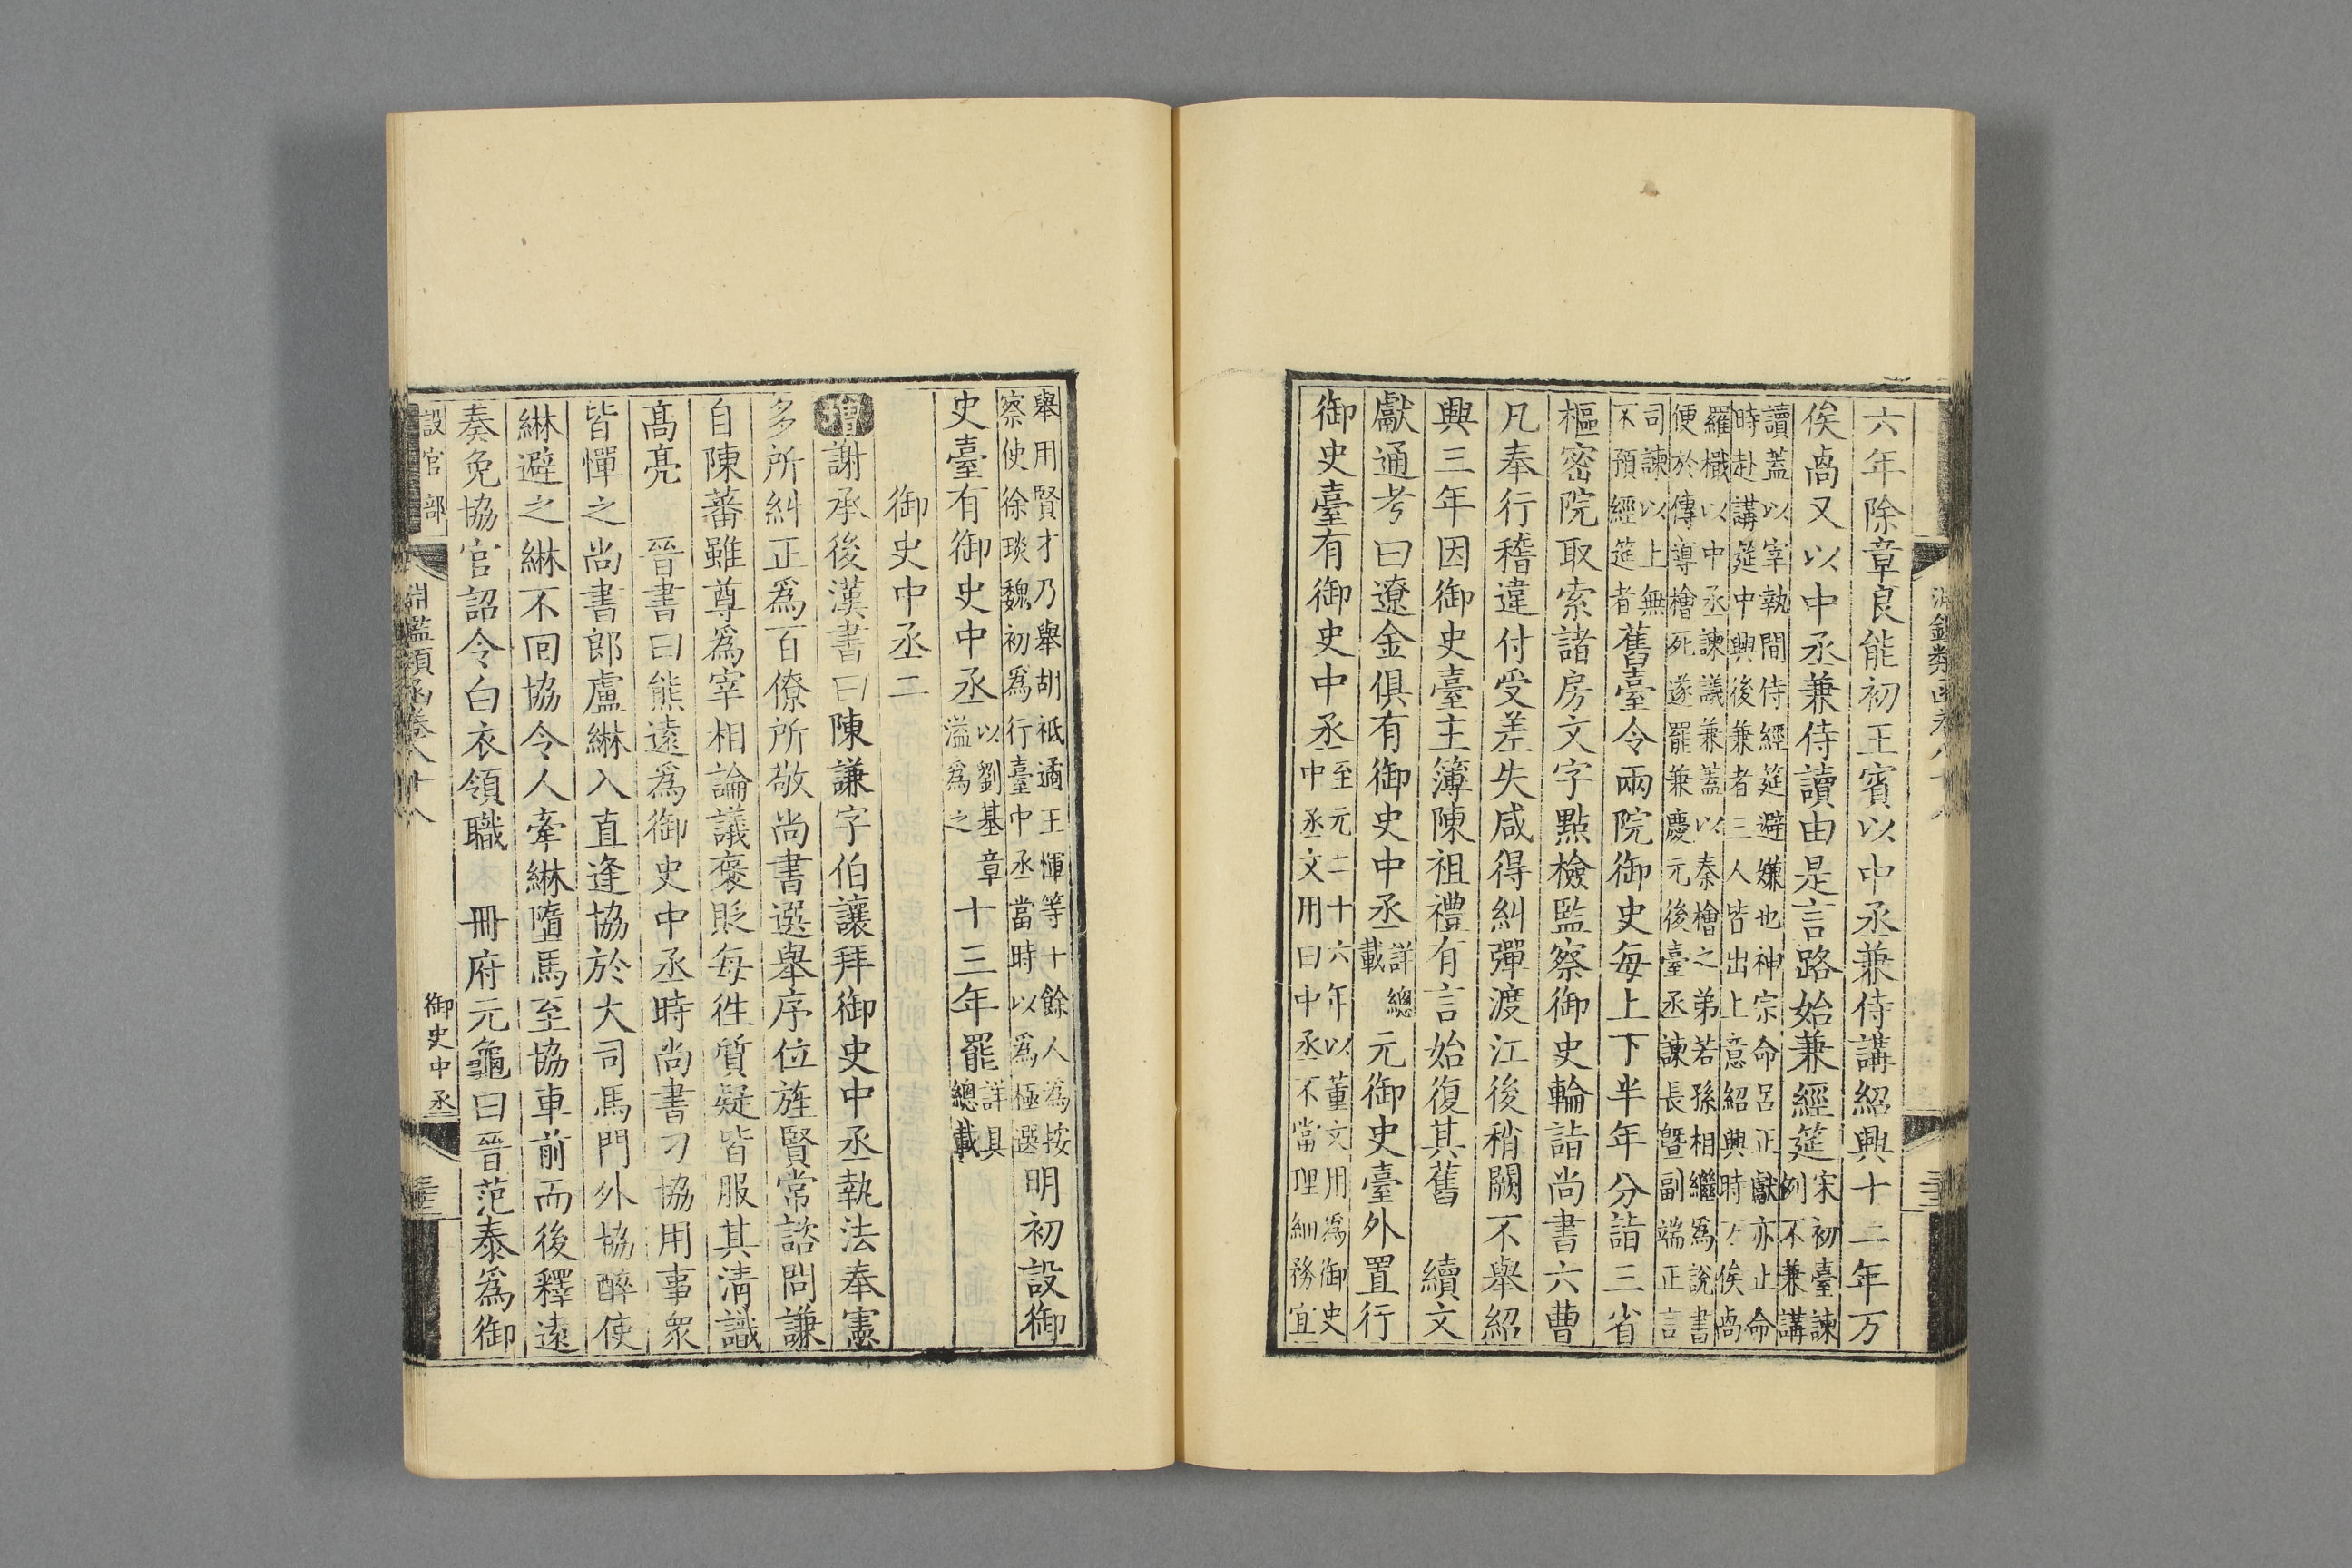 六年除章良能初王賓以中丞兼侍講紹興十二年万
俟卨又以中丞兼侍讀由是言路始兼經筵宋初臺諫例不兼講
讀蓋以宰執間侍經筵避嫌也神宗命呂正獻亦止命
時赴講筵中興後兼者三人皆出上意紹興時万俟卨
羅檝以中丞諫議兼蓋以秦檜之弟若孫相繼爲說書
便於傳導檜死遂罷兼慶元後臺丞諫長曁副端正言
司諫以上無
不預經筵者舊臺令兩院御史每上下半年分詣三省
樞密院取索諸房文字點檢監察御史輪詣尚書六曹
凡奉行稽違付受差失咸得糾彈渡江後稍闕不舉紹
興三年因御史臺主簿陳祖禮有言始復其舊 續文
獻通考曰遼金俱有御史中丞詳總載 元御史臺外置行
御史臺有御史中丞至元二十六年以董文用爲御史
中丞文用曰中丞不當理細務宜
舉用賢才乃舉胡祗遹王惲等十餘人為按
察使徐琰魏初爲行臺中丞當時以爲極選 明初設御
史臺有御史中丞以劉基章溢爲之 十三年罷詳具總載
御史中丞二
增謝承後漢書曰陳謙字伯讓拜御史中丞執法奉憲
多所糾正爲百僚所敬尚書選舉序位旌賢常諮問謙
自陳蕃雖尊爲宰相論議褒貶每徃質疑皆服其淸識
高亮 晉書曰熊遠爲御史中丞時尚書刁協用事衆
皆憚之尚書郎盧綝入直逢協於大司馬門外協醉使
綝避之綝不回協令人牽綝墮馬至協車前而後釋遠
奏免協官詔令白衣領職 冊府元龜曰晉范泰爲御
設官部
淵鑑類函卷八十八
御史中丞